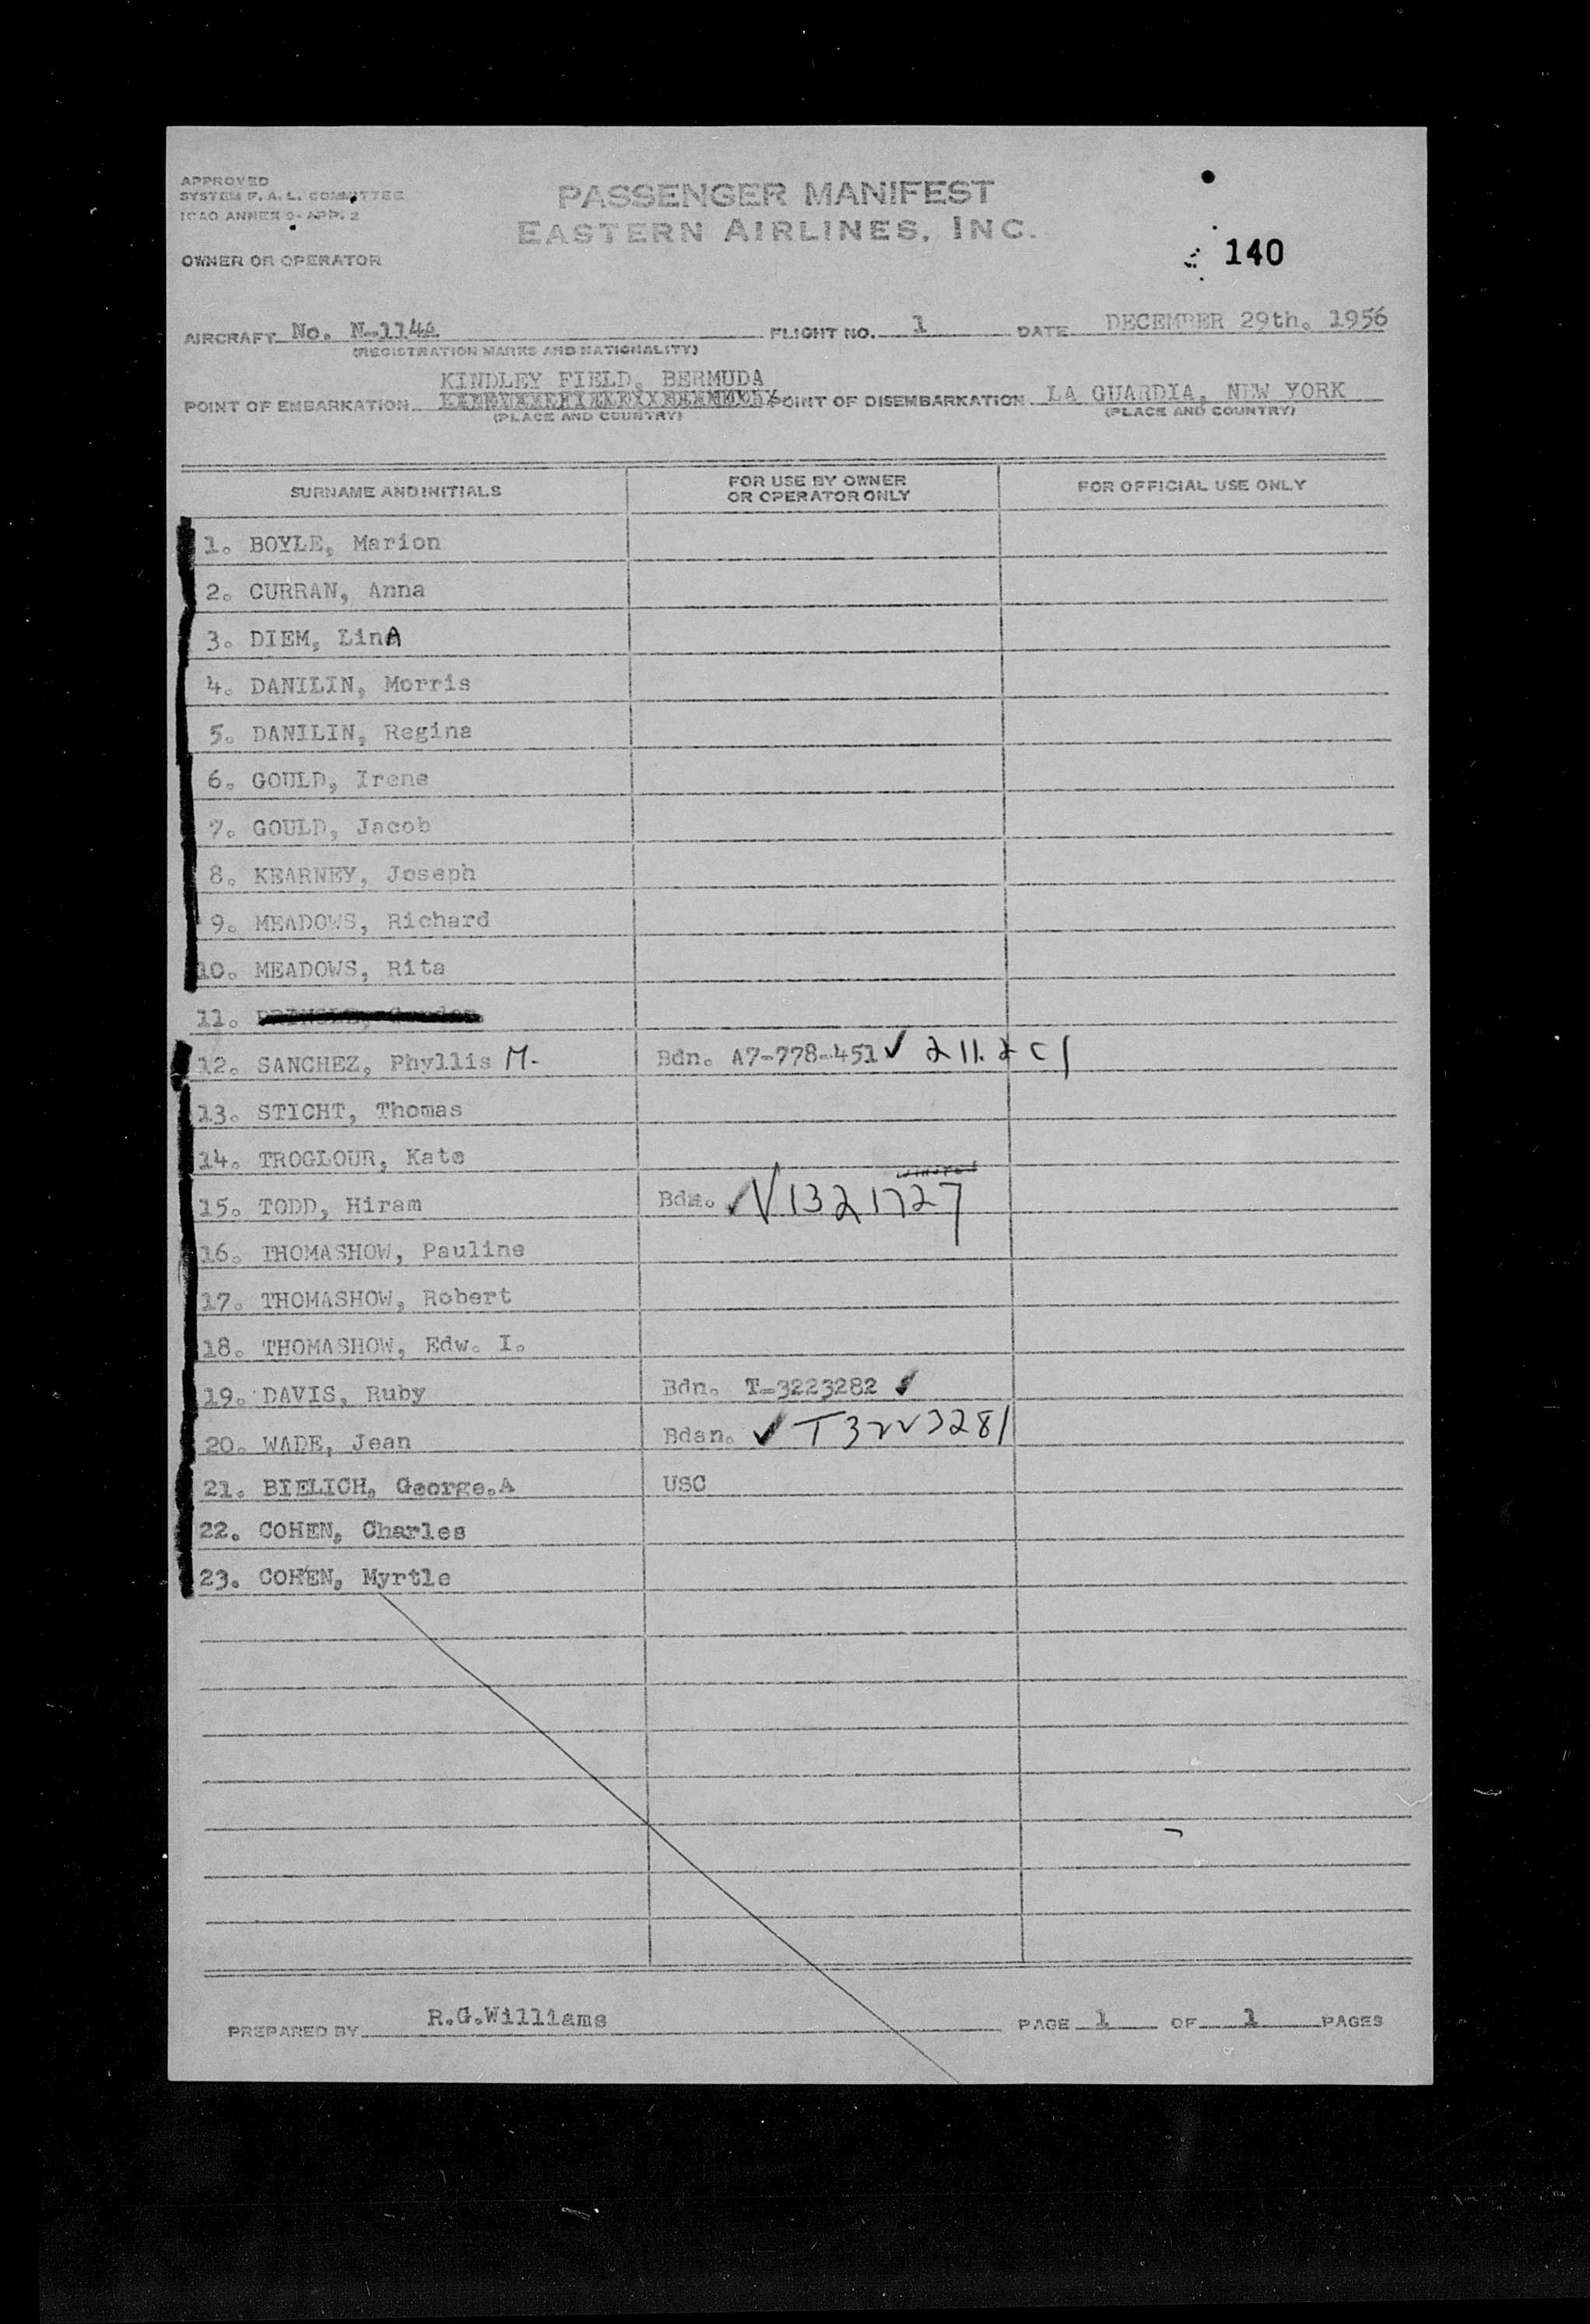 APPROVED
SYSTEM F. A. L. COMMITTEE
ICAO ANNEX 9- APP. 2
PASSENGER MANIFEST
EASTERN AIRLINES, INC.
140
OWNER OR OPERATOR
AIRCRAFT No. N-114A FLIGHT NO. 1 DATE DECEMBER 29th. 1956
(REGISTRATION MARKS AND NATIONALITY)
KINDLEY FIELD, BERMUDA
POINT OF EMBARKATION POINT OF DISEMBARKATION LA GUARDIA, NEW YORK
(PLACE AND COUNTRY) (PLACE AND COUNTRY)
SURNAME AND INITIALS FOR USE BY OWNER OR OPERATOR ONLY FOR OFFICIAL USE ONLY
1. BOYLE, Marion
2. CURRAN, Anna
3. DIEM, LinA
4. DANILIN, Morris
5. DANILIN, Regina
6. GOULD, Irene
7. GOULD, Jacob
8. KEARNEY, Joseph
9. MEADOWS, Richard
10. MEADOWS, Rita
11.
12. SANCHEZ, Phyllis M. Bdn. A7-778-451 ✓ 211.2 C1
13. STICHT, Thomas
14. TROGLOUR, Kate
15. TODD, Hiram Bdn. ✓ V1321727
16. THOMASHOW, Pauline
17. THOMASHOW, Robert
18. THOMASHOW, Edw. I.
19. DAVIS, Ruby Bdn. T-3223282 ✓
20. WADE, Jean Bdan. ✓ T3223281
21. BIELICH, George.A USC
22. COHEN, Charles
23. COHEN, Myrtle
PREPARED BY R.G.Williams PAGE 1 OF 1 PAGES